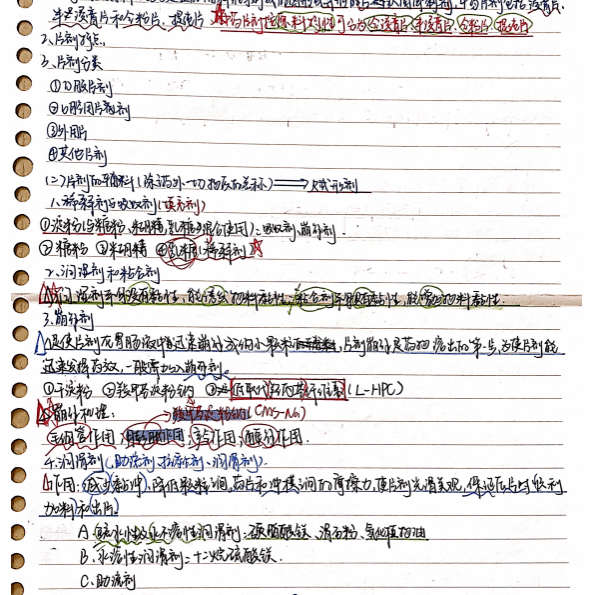 半浸膏片和全粉片、提纯片 ☆中药片剂按原料特性可分为全浸膏片、半浸膏片、全粉片、提纯片
2、片剂特点
3、片剂分类
①口服片剂
②口腔用片剂
③外用片
④其他片剂
(二)片剂的辅料(除药外一切物质的总称)⟹赋形剂
1、稀释剂与吸收剂(填充剂)
①淀粉(与糖粉、糊精混合使用)、吸收剂、崩解剂.
②糖粉 ③糊精 ④乳糖:稀释剂☆
2、润湿剂和粘合剂
润湿剂本身没有黏性,能诱发物料黏性;粘合剂本身具有黏性,能增加物料黏性.
3、崩解剂
是使片剂在胃肠液中迅速崩解成细小颗粒,片剂崩解是药物溶出的第一步,为使片剂能
迅速发挥药效,一般需加入崩解剂.
①干淀粉 ②羧甲基淀粉钠 ③低取代羟丙基纤维素(L-HPC)
崩解机理: (CMS-Na)
毛细管作用、膨胀作用、产气作用、酶解作用.
4、润滑剂(助流剂、抗黏剂、润滑剂).
作用: 降低颗粒间、药片和冲模间的摩擦力,使片剂光滑美观,保证压片时顺利
加料和出片
A.疏水性及水不溶性润滑剂:硬脂酸镁、滑石粉、氢化植物油
B.水溶性润滑剂:十二烷硫酸镁.
C.助流剂